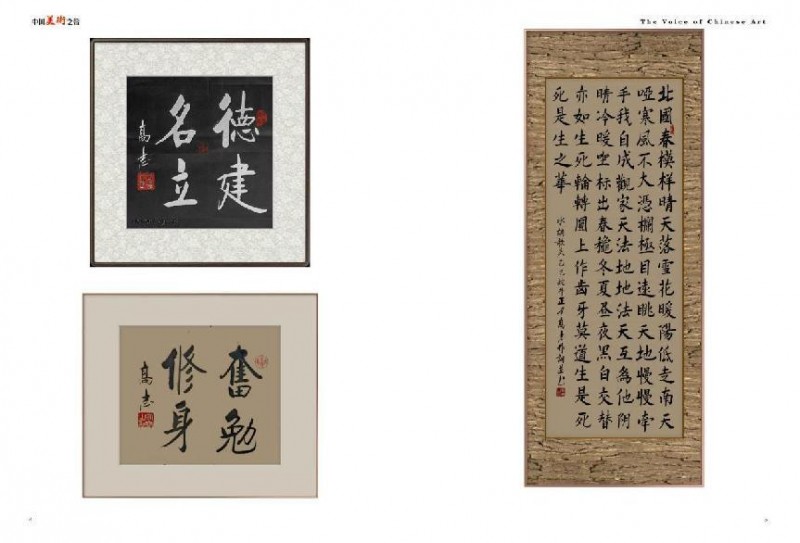 中国美術之
The Voice of Chinese Art
德建
名立
高志
奮勉
修身
高志
北國春模樣晴天落雪花暖陽低走南天
啞寒風不大憑欄極目遠眺天地慢慢牵
手我自成觀家天法地地法天互為他阴
晴冷暖空标出春穐冬夏昼夜黑白交替
亦如生死輪轉圆上作齿牙莫道生是死
死是生之華
水調歌头